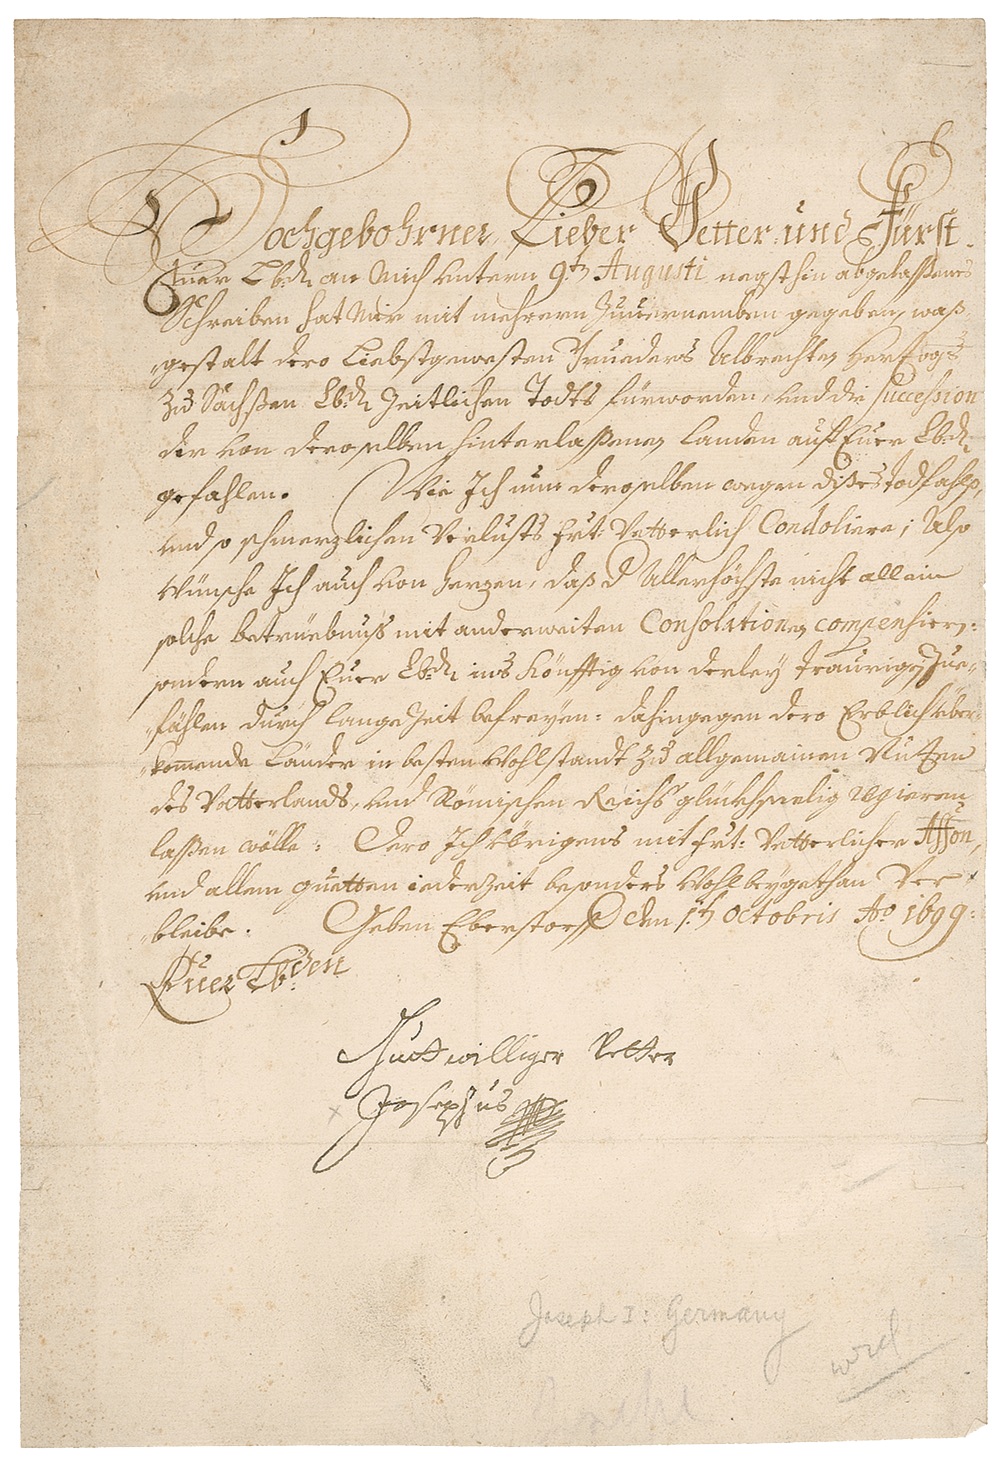 Hochgebohrner Lieber Vetter und Fürst.
Euer Lbdn. an Mich untern 9tn. Augusti negsthin abgelaßenes
Schreiben hat Mir mit mehrern Zuuernemben gegeben, waß
gestalt dero Liebstgewesten Brueders Albrechten Herzogs
Zu Sachßen Lbdn. Zeitlichen Todts fürworden, und die Succession
der von deroselben hinterlaßenen Landen auf Euer Lbdn.
gefahlen. Wie Ich nun deroselben wegen dißes todfahls,
und so schmerzlichen Verlusts frt: Vetterlich Condoliere; Also
Wünsche Ich auch von herzen, daß d Allerhöchste nicht allein
solche betrüebnuß mit anderweiten Consolationen compensieren:
sondern auch Euer Lbdn. ins Könfftig von derley traurigen Zue-
fählen durch lange Zeit befreyen: dahingegen dero Erblich über-
kommende Länder in besten Wohlstandt Zu allgemainen Nutzen
des Vatterlands, und Römischen Reichs glückhseelig regieren
laßen wölle: Dero Ich übrigens mit frt: Vetterlicher Affon,
und allem guetten iederzeit besonders Wohlbeygethan Ver-
bleibe. Geben Eberstorff den 1.tn Octobris Ao. 1699:
Euer Lbden
Guttwilliger Vetter
Josephus
Joseph I: Germany